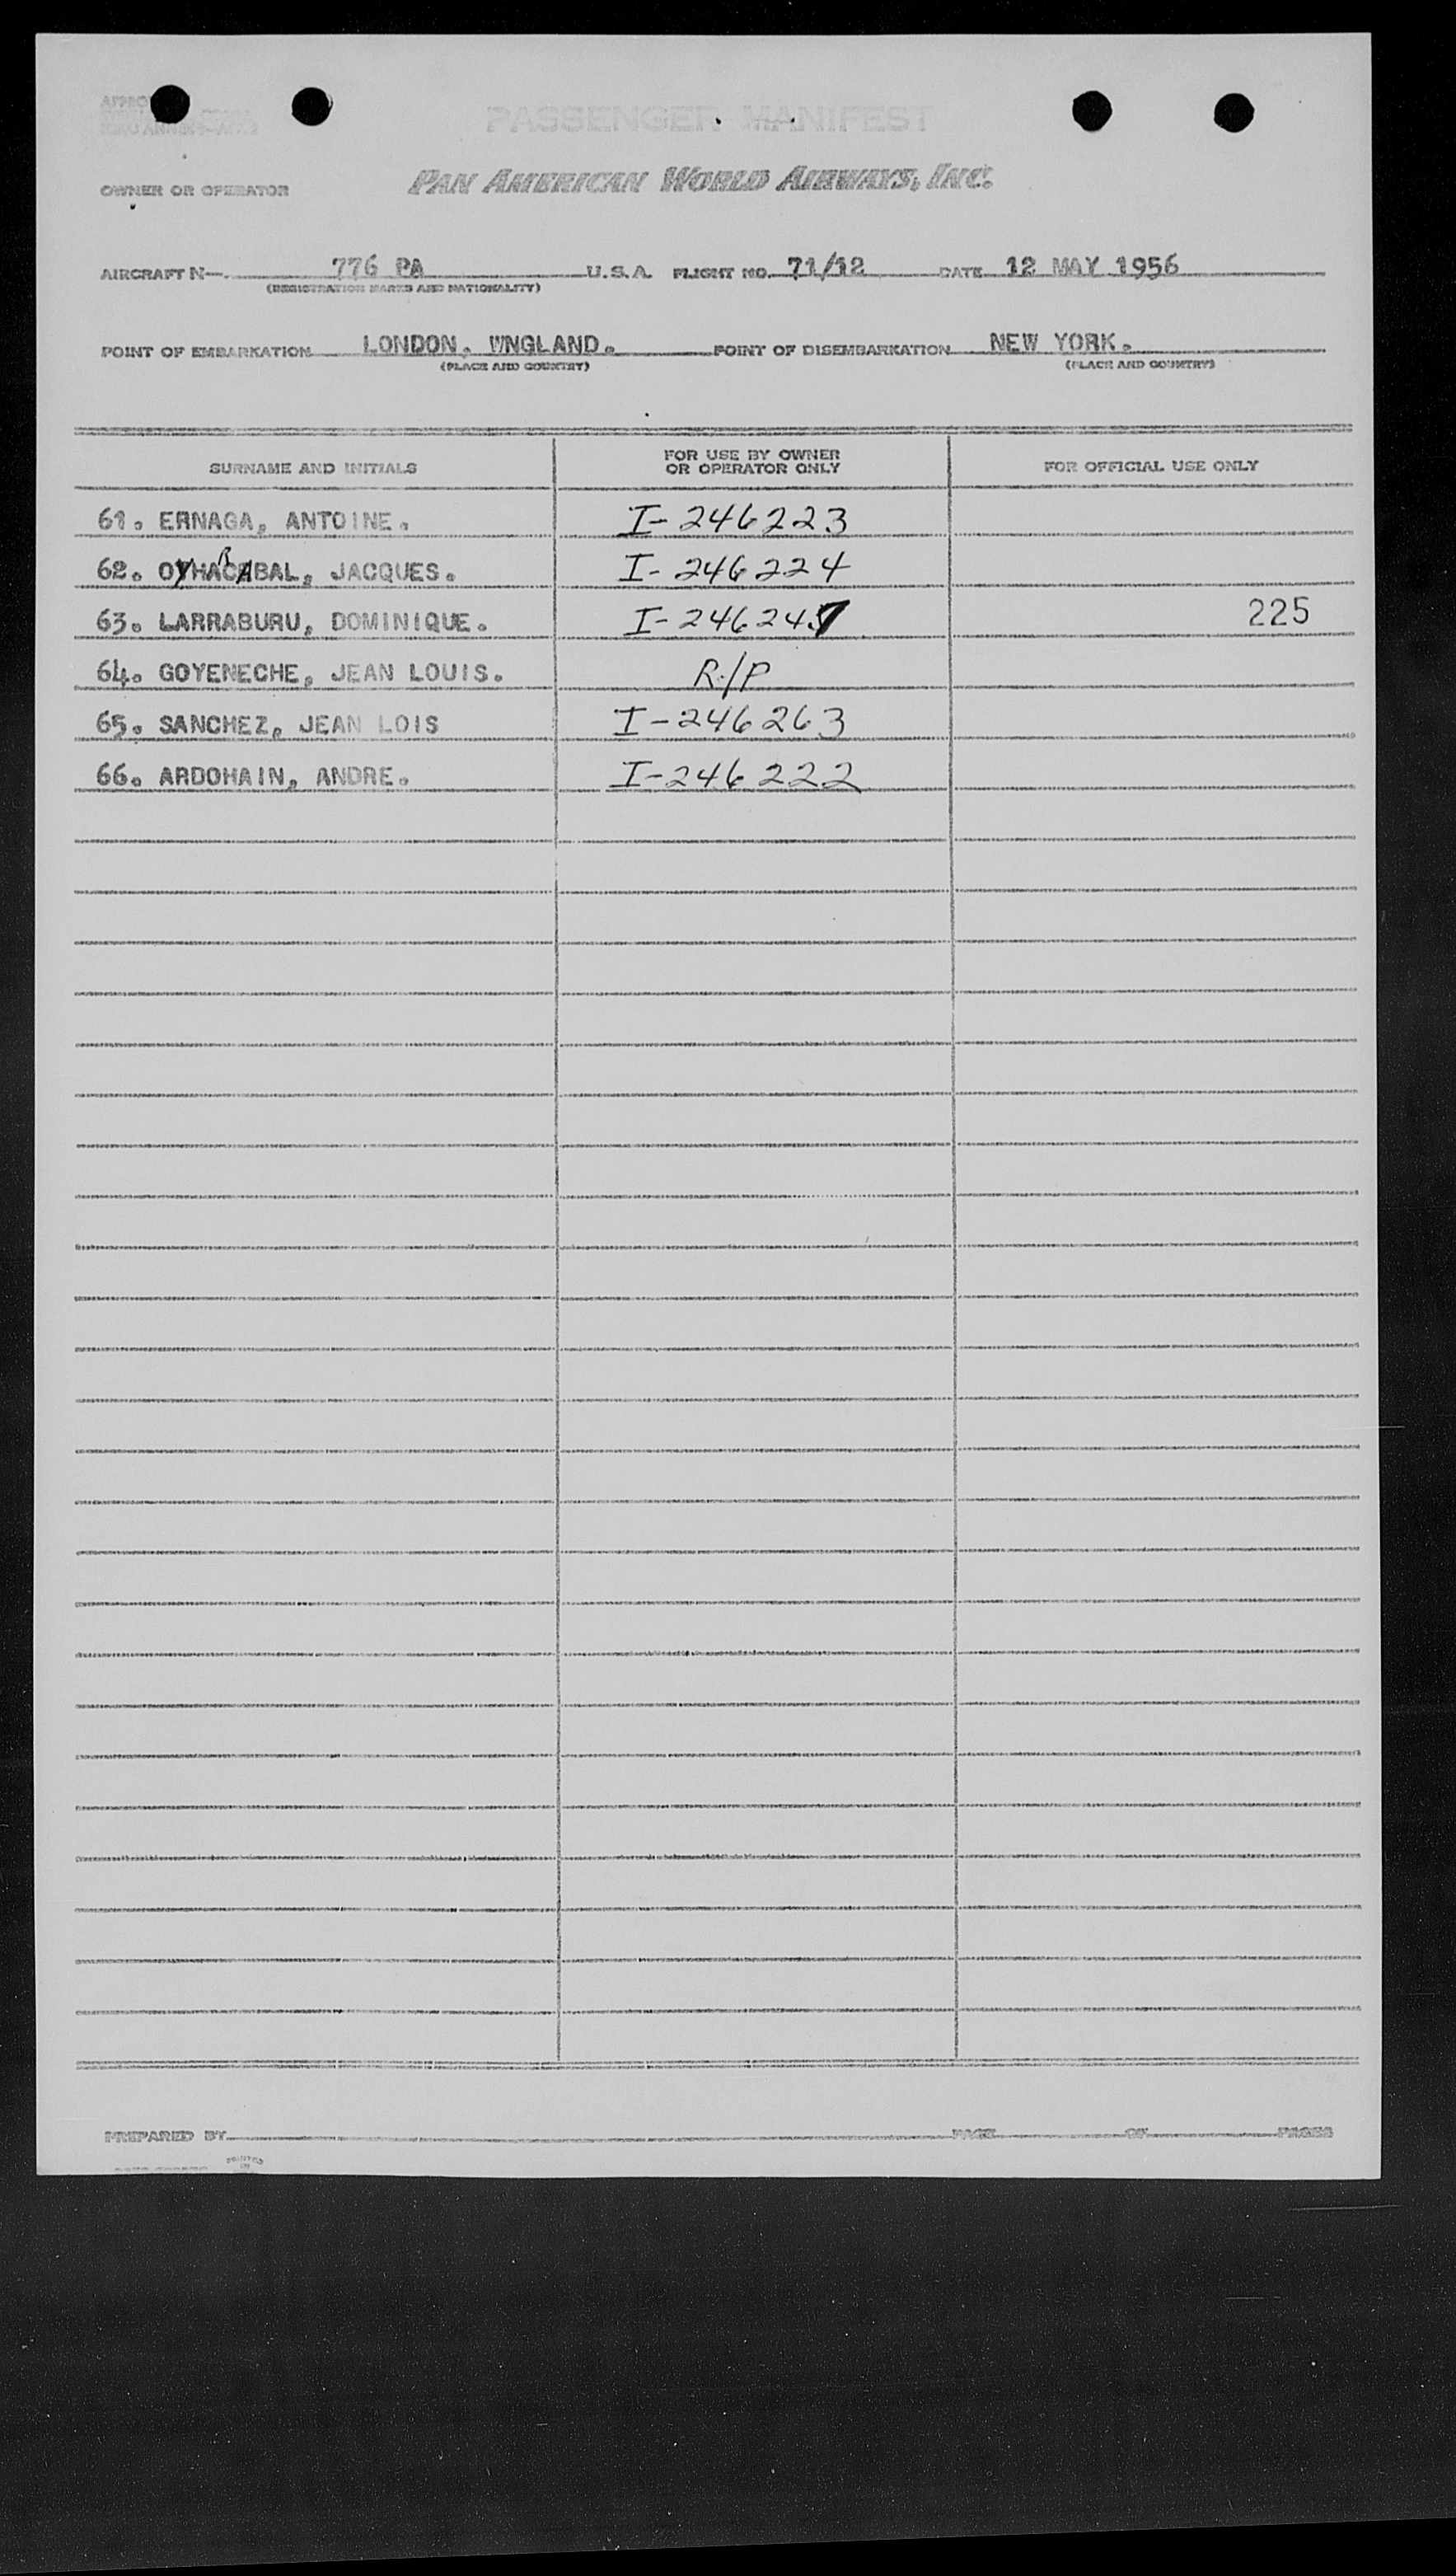 PASSENGER MANIFEST
OWNER OR OPERATOR PAN AMERICAN WORLD AIRWAYS, INC.
AIRCRAFT N- 776 PA U.S.A. FLIGHT NO. 71/12 DATE 12 MAY 1956
(REGISTRATION MARKS AND NATIONALITY)
POINT OF EMBARKATION LONDON, WNGLAND. POINT OF DISEMBARKATION NEW YORK.
(PLACE AND COUNTRY) (PLACE AND COUNTRY)
SURNAME AND INITIALS FOR USE BY OWNER OR OPERATOR ONLY FOR OFFICIAL USE ONLY
61. ERNAGA, ANTOINE. I-246223
62. OYHACABAL, JACQUES. I-246224
63. LARRABURU, DOMINIQUE. I-246247 225
64. GOYENECHE, JEAN LOUIS. R/P
65. SANCHEZ, JEAN LOIS I-246263
66. ARDOHAIN, ANDRE. I-246222
PREPARED BY PAGE OF PAGES
PRINTED
IN